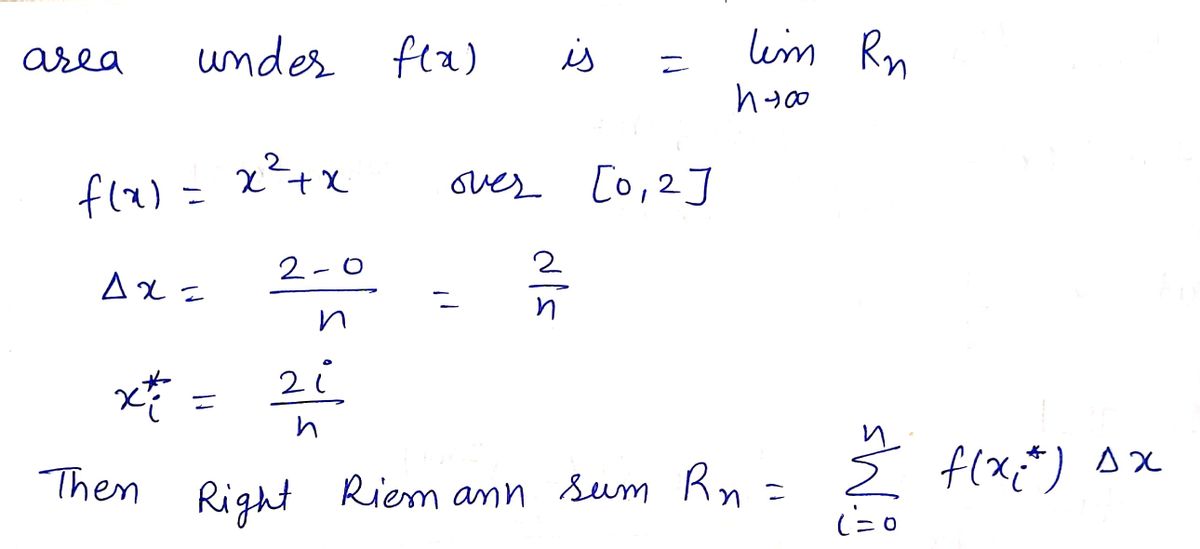 area under f(x) is = lim n→∞ Rn
f(x) = x² + x over [0,2]
Δx = (2-0)/n = 2/n
xᵢ* = 2i/n
Then Right Riemann sum Rn = Σ i=0 n f(xᵢ*) Δx